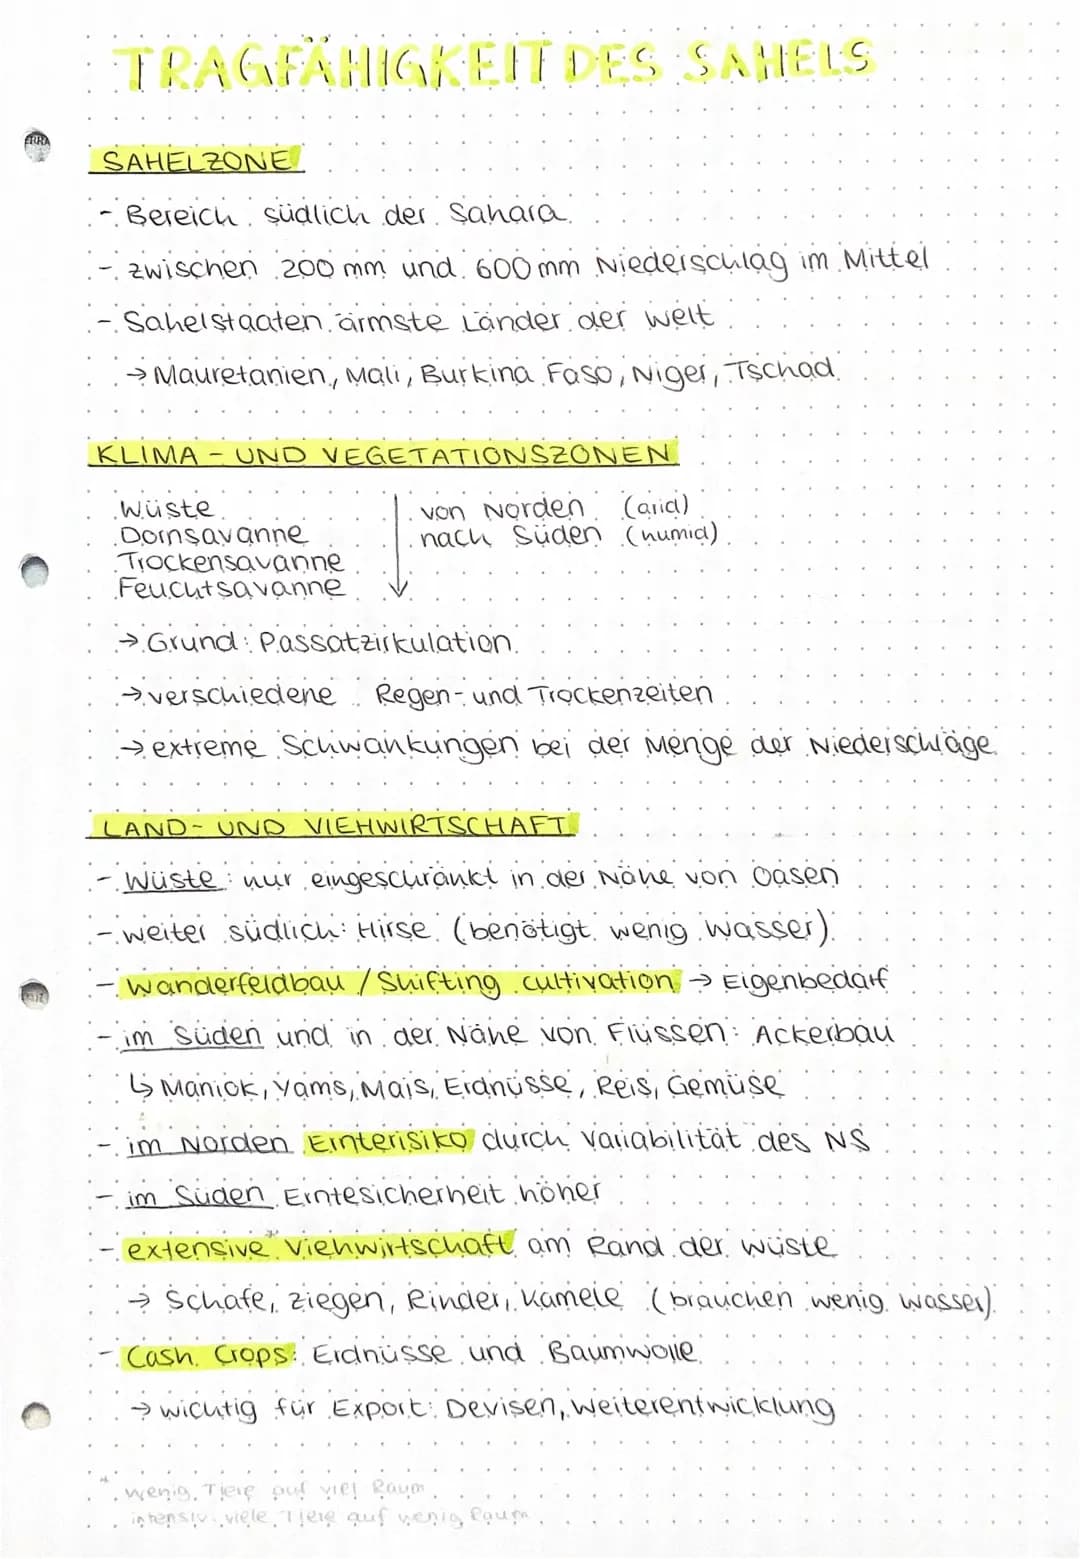 TRAGFÄHIGKEIT DES SAHELS
SAHELZONE
- Bereich südlich der Sahara
- zwischen 200 mm und 600 mm Niederschlag im Mittel
- Sahelstaaten ärmste Länder der Welt
→ Mauretanien, Mali, Burkina Faso, Niger, Tschad
KLIMA - UND VEGETATIONSZONEN
Wüste
von Norden (arid)
Dornsavanne
nach Süden (humid)
Trockensavanne
Feuchtsavanne
→ Grund: Passatzirkulation
→ verschiedene Regen- und Trockenzeiten
→ extreme Schwankungen bei der Menge der Niederschläge
LAND- UND VIEHWIRTSCHAFT
- Wüste: nur eingeschränkt in der Nähe von Oasen
- weiter südlich: Hirse (benötigt wenig Wasser)
- Wanderfeldbau / Shifting cultivation → Eigenbedarf
- im Süden und in der Nähe von Flüssen: Ackerbau
↳ Maniok, Yams, Mais, Erdnüsse, Reis, Gemüse
- im Norden Ernterisiko durch Variabilität des NS
- im Süden Erntesicherheit höher
- extensive* Viehwirtschaft am Rand der Wüste
→ Schafe, Ziegen, Rinder, Kamele (brauchen wenig Wasser)
- Cash Crops: Erdnüsse und Baumwolle
→ wichtig für Export: Devisen, Weiterentwicklung
* wenig Tiere auf viel Raum
intensiv: viele Tiere auf wenig Raum